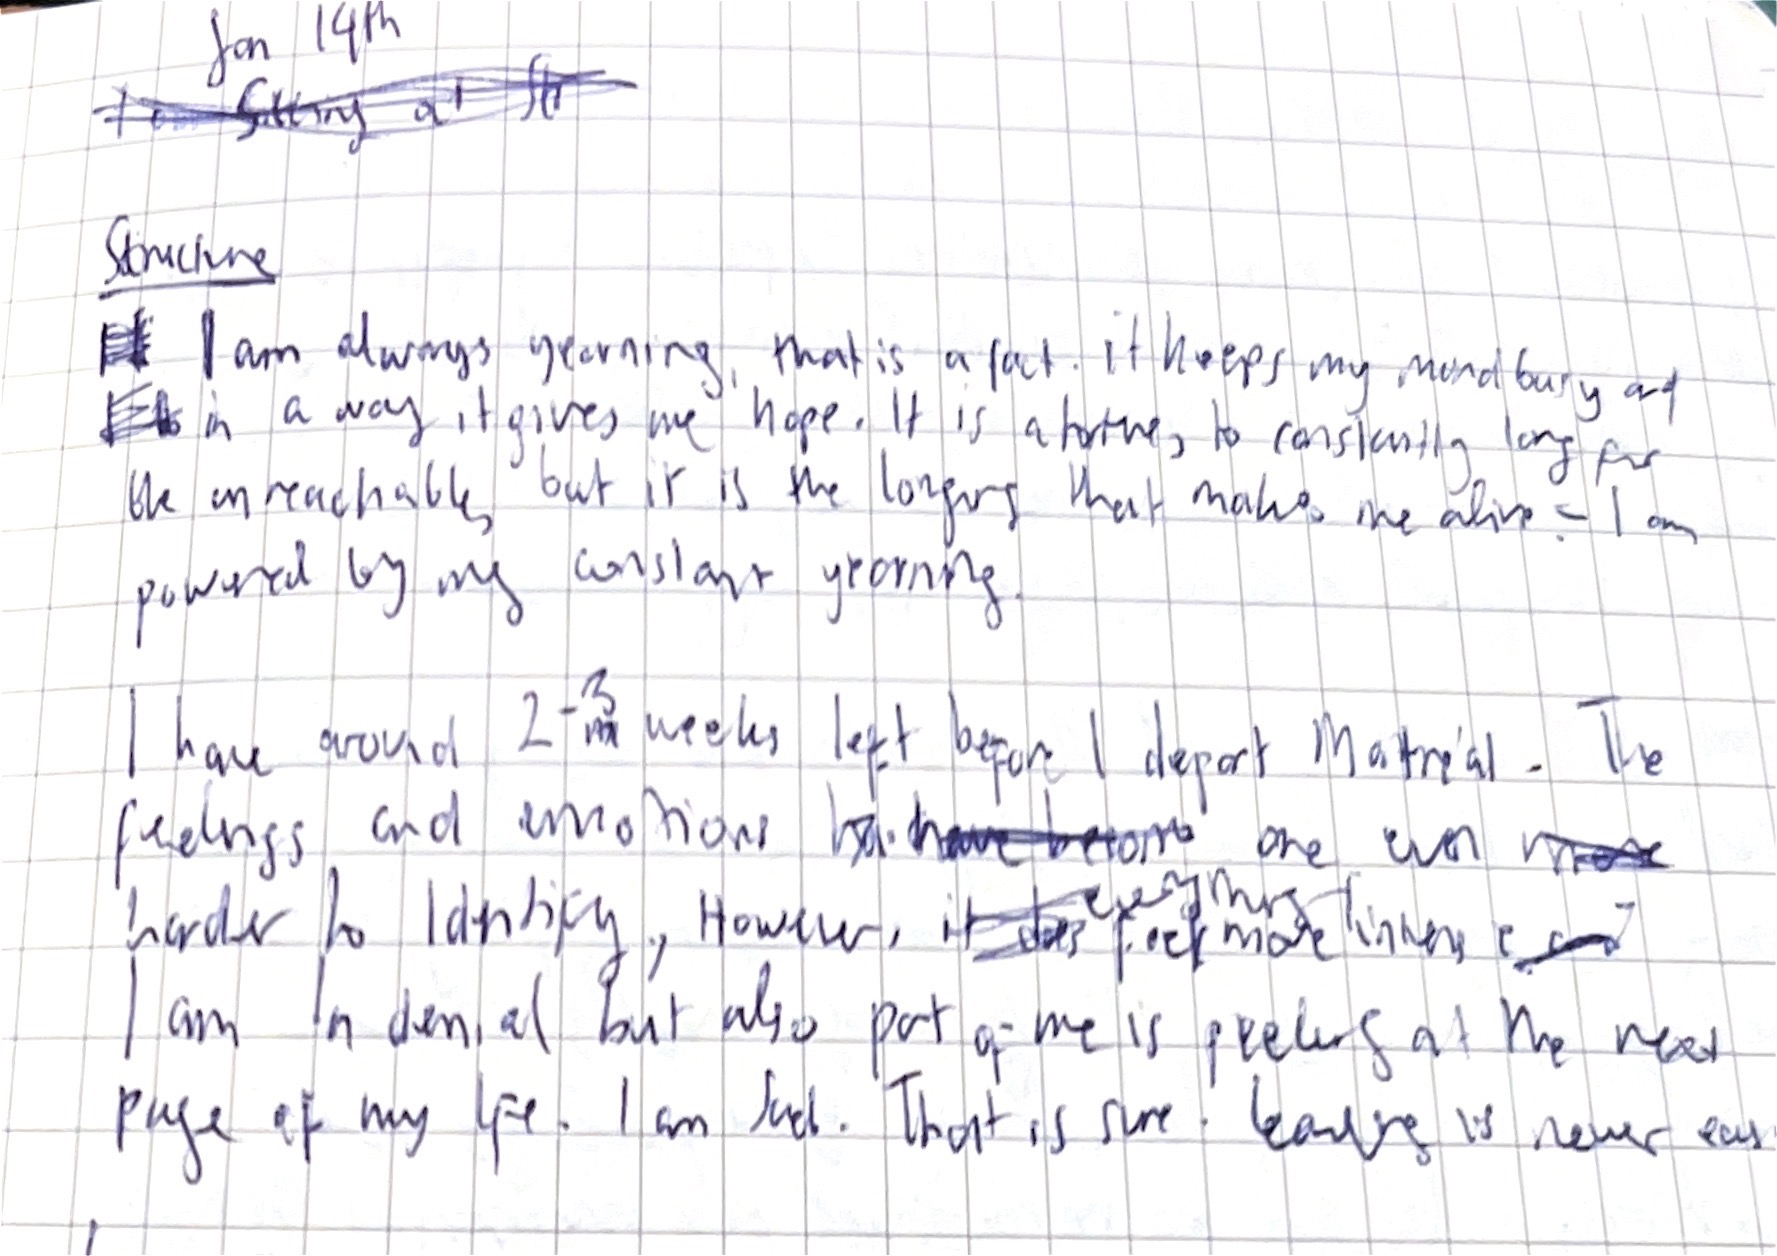 Jan 14th
Sitting at
Structure
I am always yearning, that is a fact. it keeps my mind busy and
in a way it gives me hope. It is a torture, to constantly long for
the unreachable, but it is the longing that makes me alive - I am
powered by my constant yearning.
I have around 2-3 weeks left before I depart Montréal. The
feelings and emotions have become are even more
harder to Identify, However, it does everything feels more intense and
I am In denial but also part of me is peeking at the next
page of my life. I am sad. That is sure. Leaving is never eas